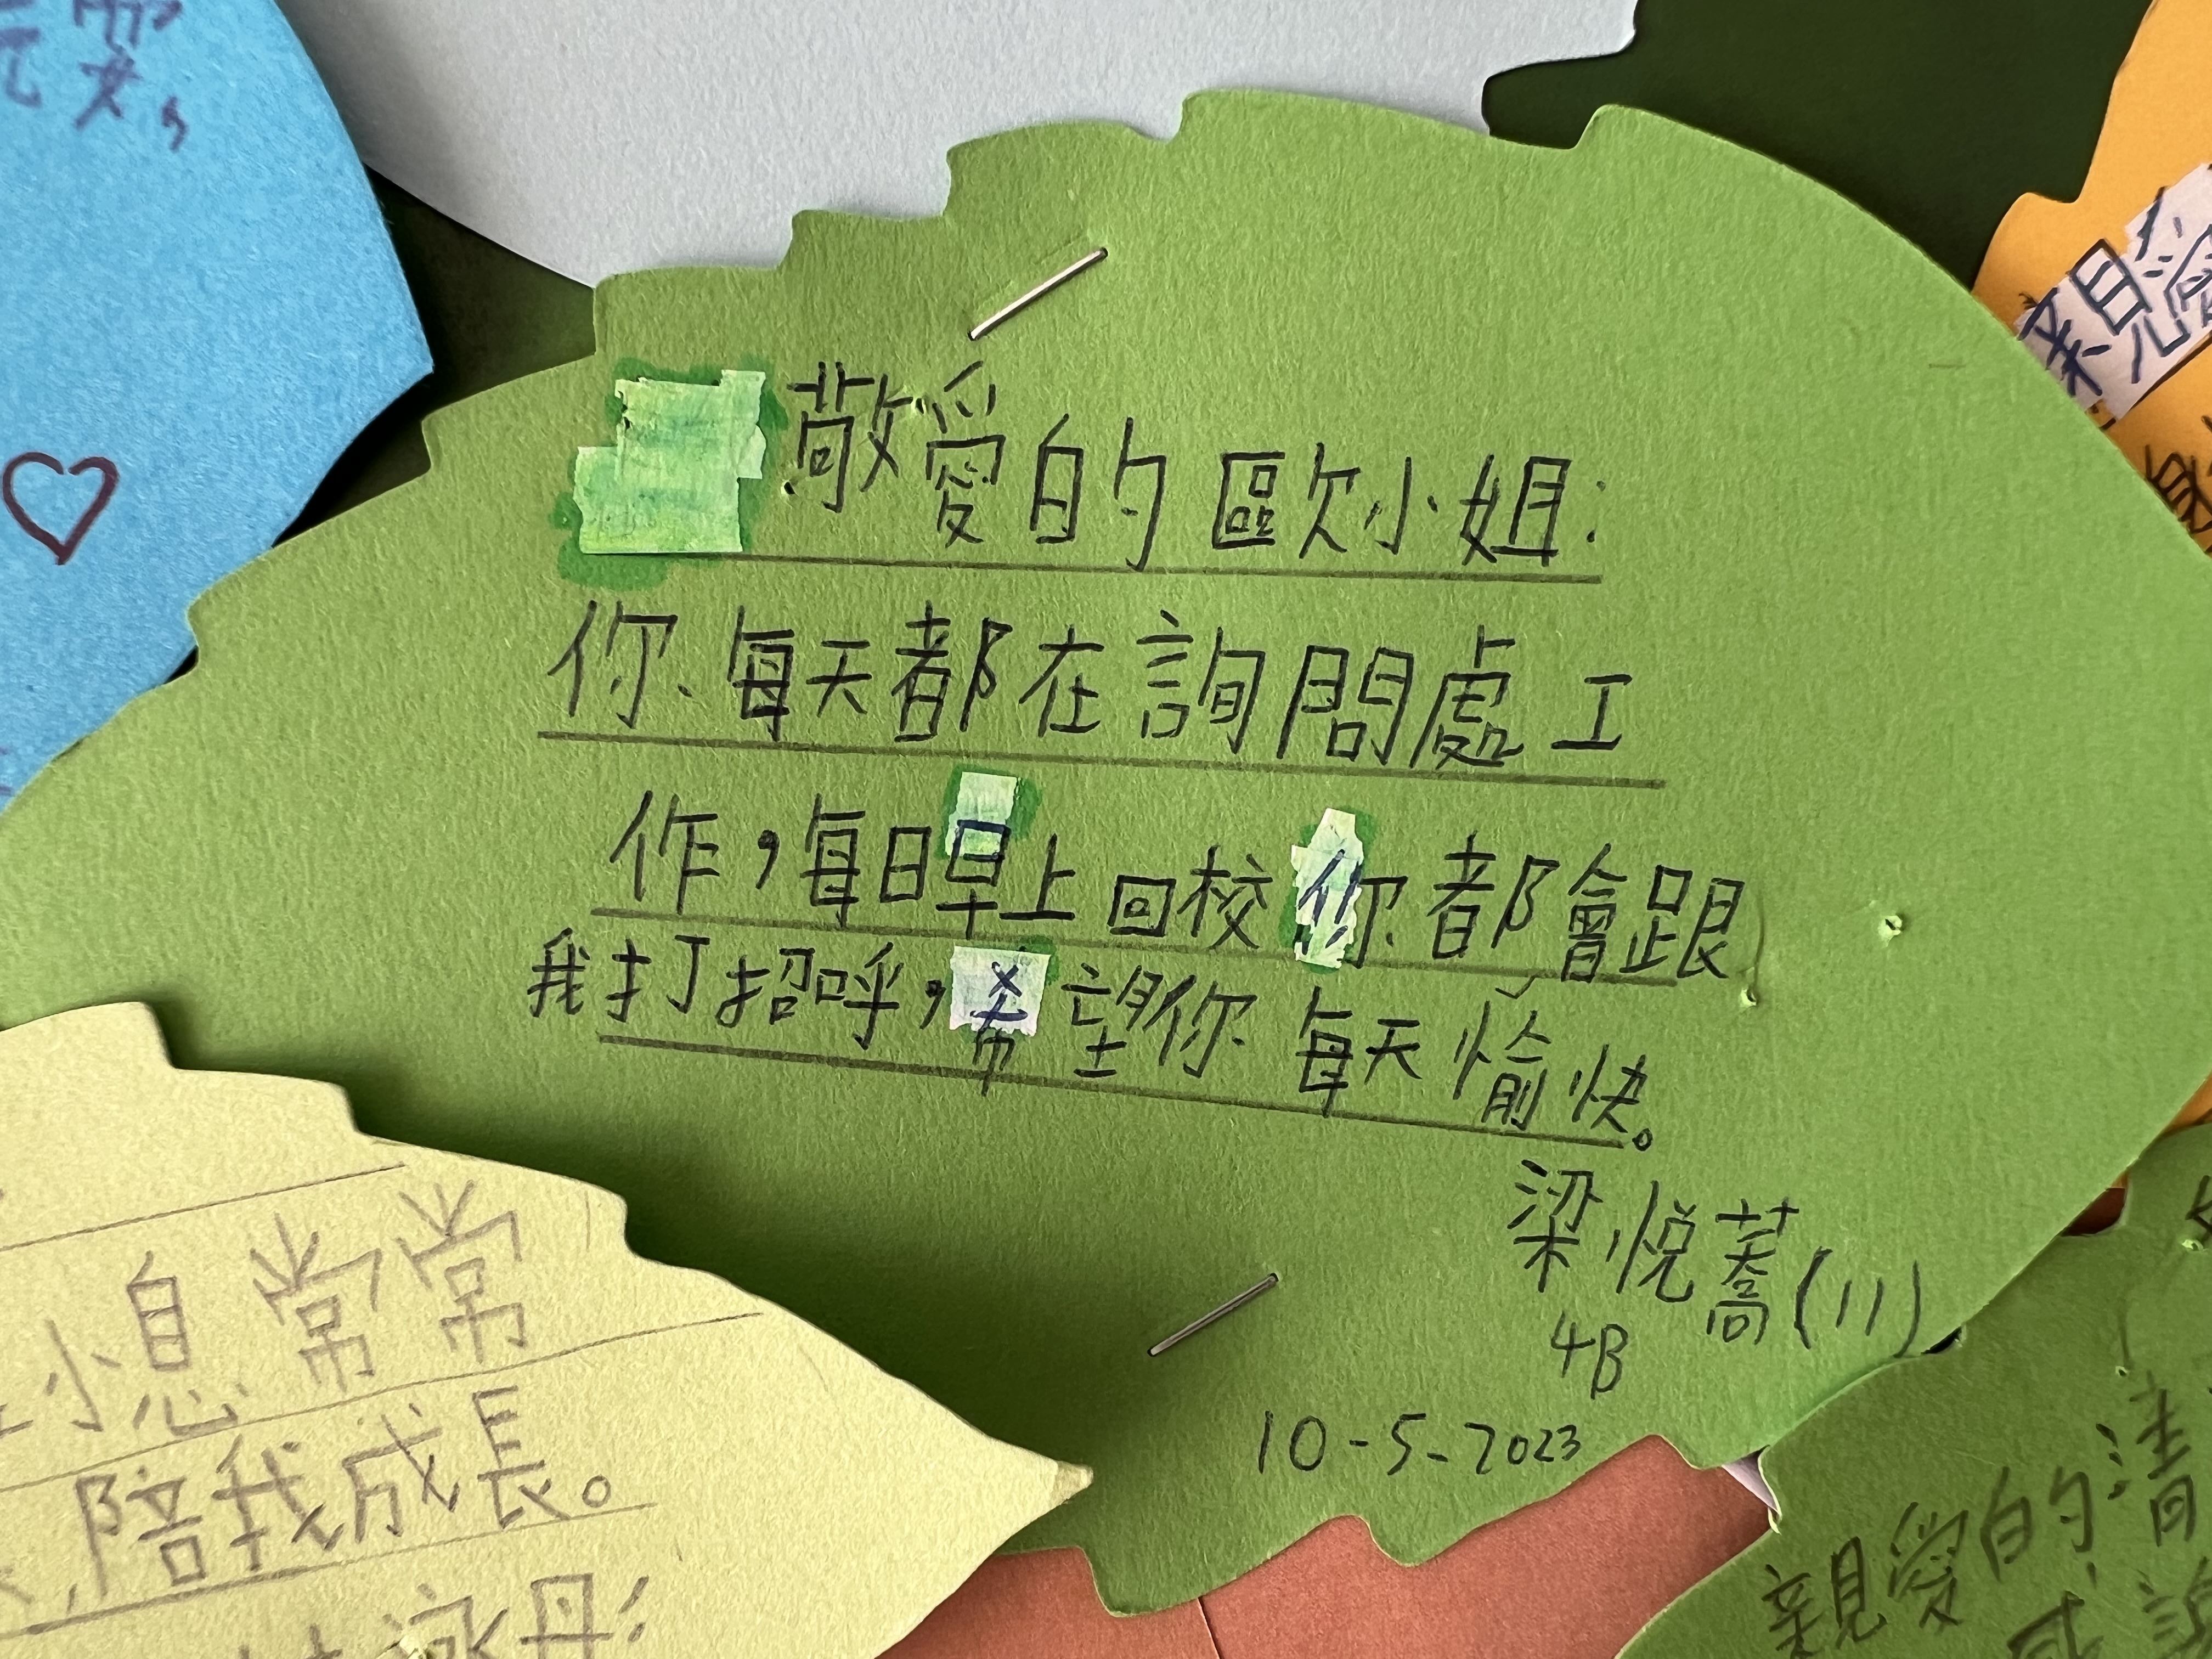 敬愛的歐小姐：
你每天都在詢問處工
作，每日早上回校你都會跟
我打招呼，希望你每天愉快。
梁悅蕎(11)
4B
10-5-2023
小息常常
陪我成長。
親愛
親愛的清
感謝